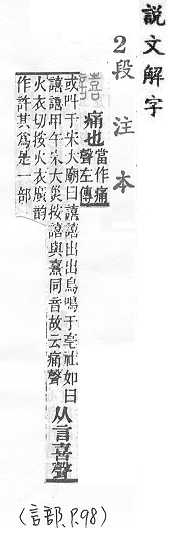 說文解字
2段注本
譆 痛也
當作痛
聲左傳
或叫于宋大廟曰譆譆出出鳥鳴于亳社如曰
譆譆甲午宋大災按譆與熹同音故云痛聲
从言喜聲
火衣切按火衣廣韵
作許其爲是一部
(言部.P.98)